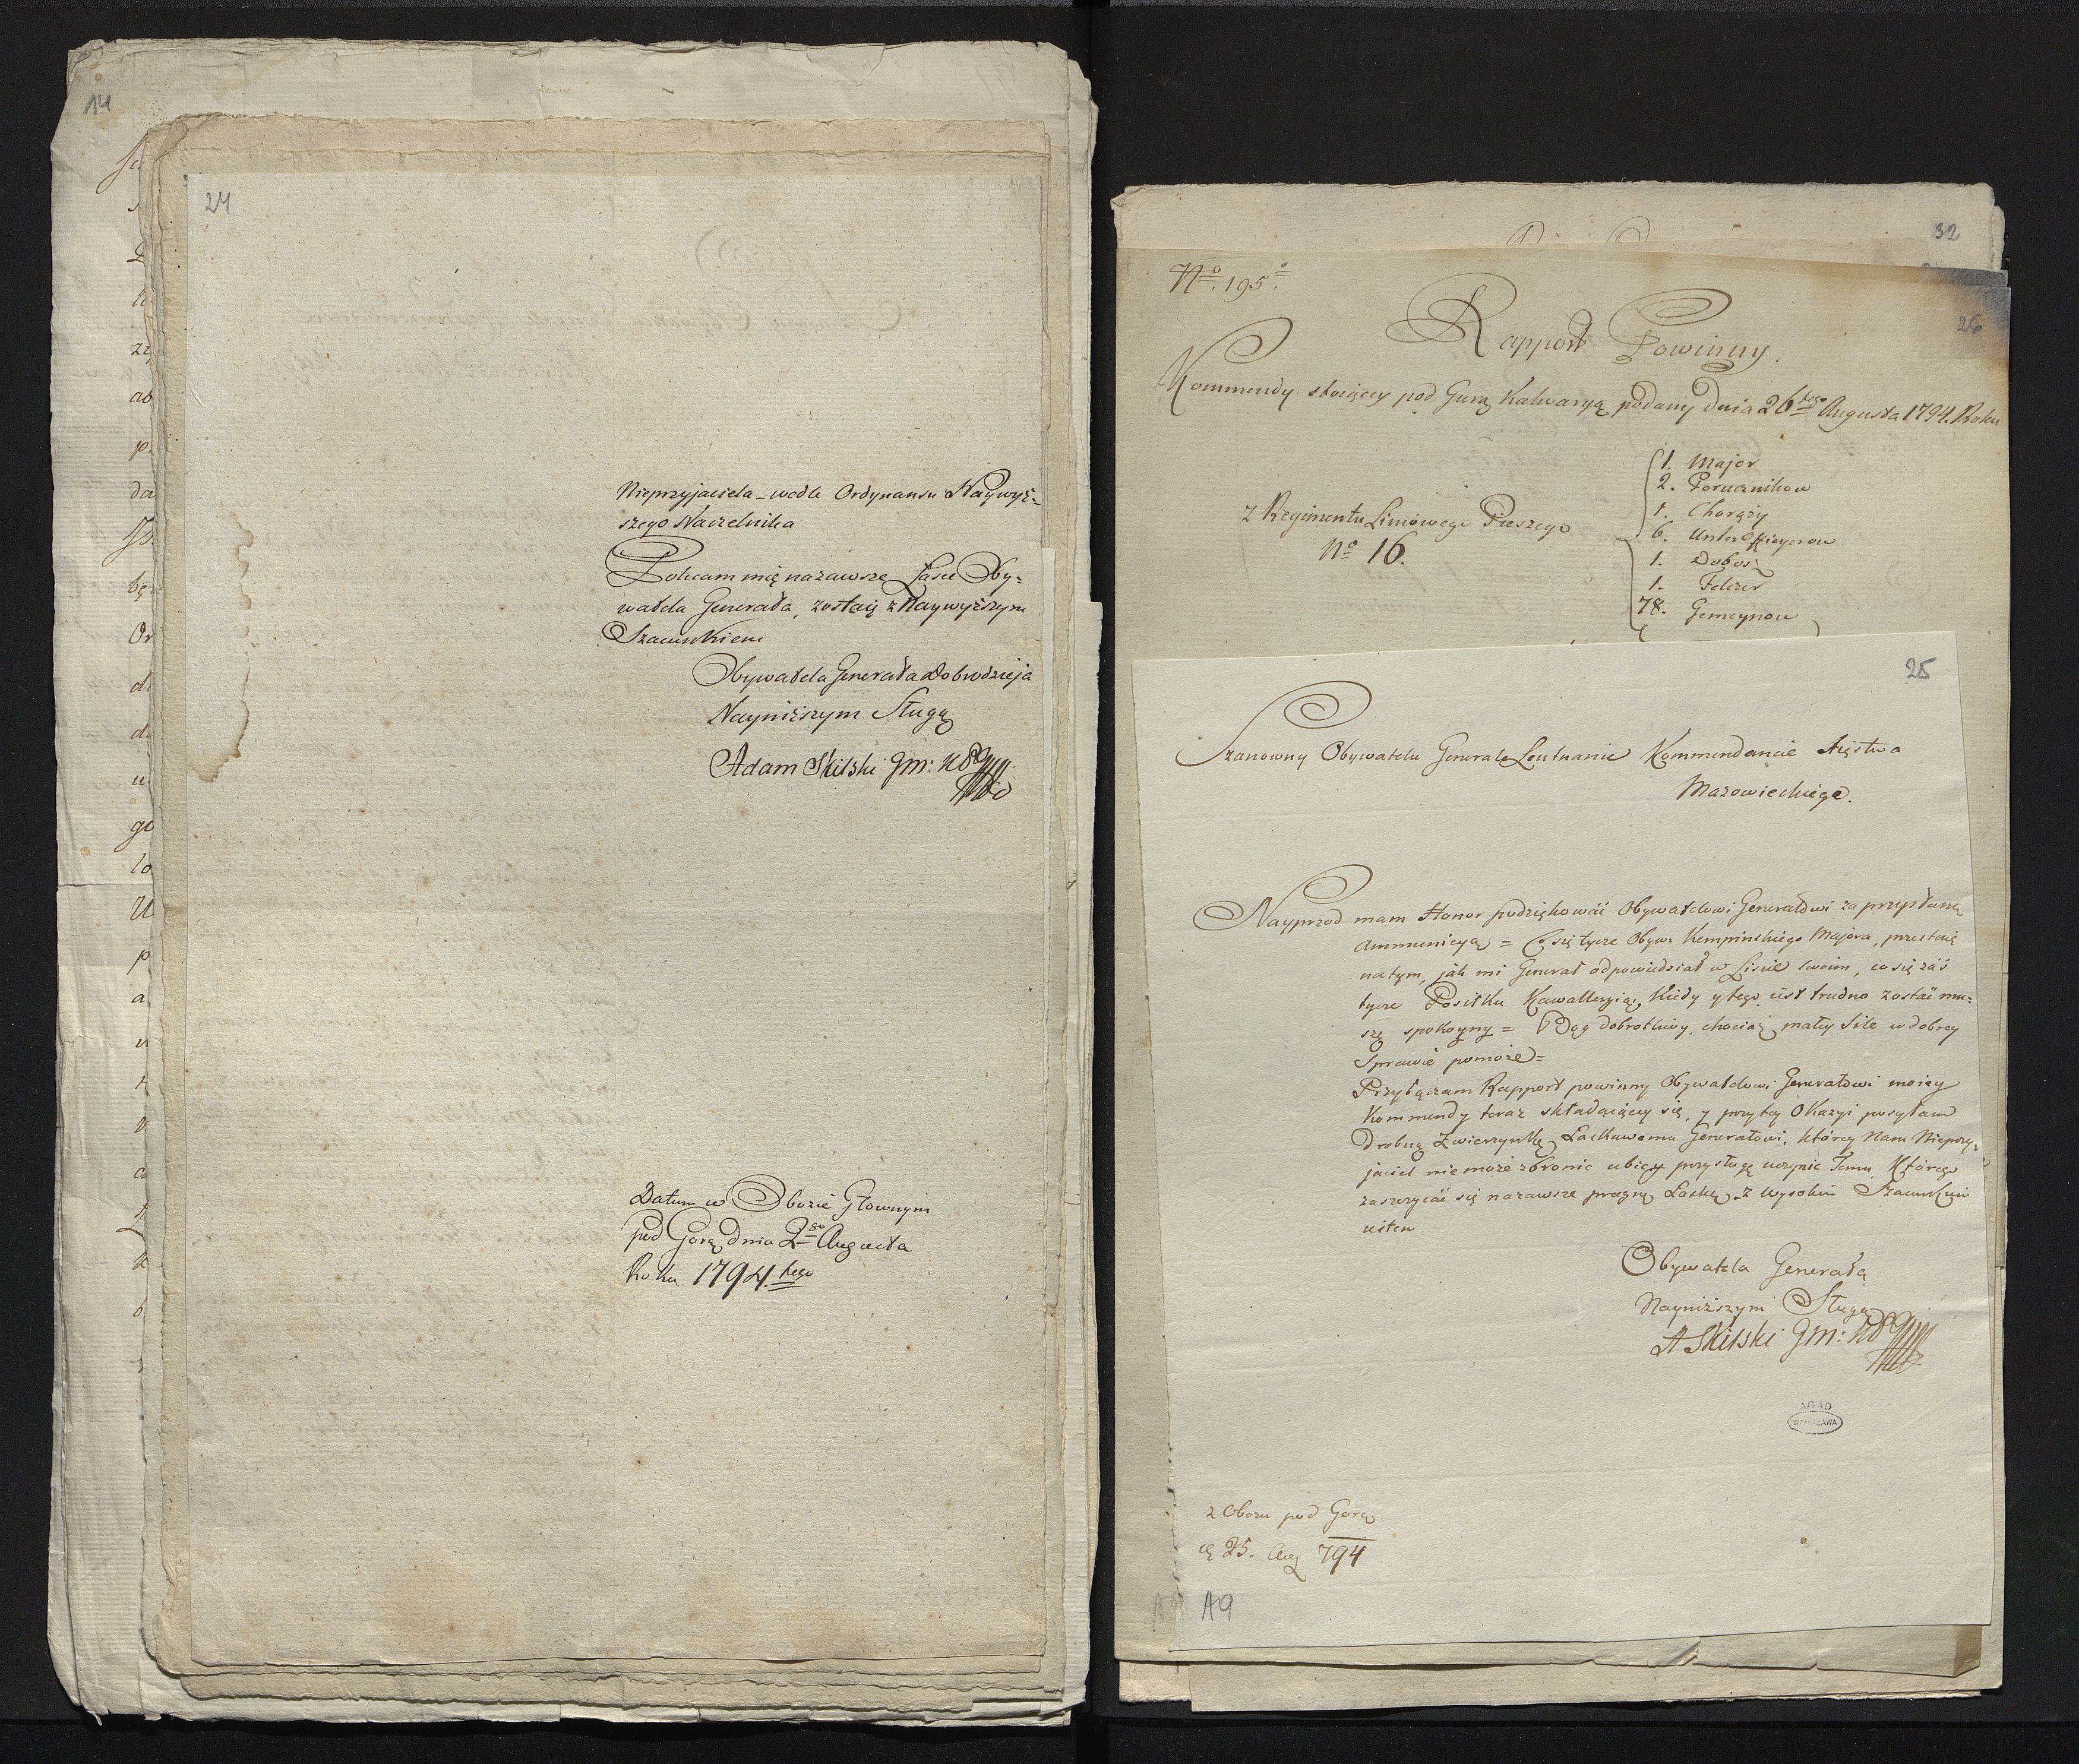 14
24
Nieprzyjaciela – wedle Ordynansu Naywyż-
szego Naczelnika
Polecam mię nazawsze Łasce Oby-
watela Generała, zostaię z Naywyższym
Szacunkiem
Obywatela Generała Dobrodzieja
Nayniższym Sługą
Adam Skilski Gm:
Datum w Obozie Głownym
pod Gorą dnia 2go Augusta
Roku 1794.tego
32
26
No. 195.
Rapport Powinny.
Kommendy stoiącey pod Gurą Kalwaryą podany Dnia 26tego Augusta 1794. Roku
z Regimentu Liniowego Pieszego
No 16.
1. Major
2. Porucznikow
1. Chorąży
6. Unter Officyerow
1. Dobosz
1. Felczer
78. Gemeynow
25
Szanowny Obywatelu Generale Leutnancie Kommendancie Xięstwa
Mazowieckiego.
Nayprzod mam Honor podziękować Obywatelowi Generałowi za przysłaną
Ammunicyą = Co się tycze Obyw: Kempinskiego Majora, przestaię
natym, jak mi Generał odpowiedział w Liscie swoim, co się zaś
tycze Posiłku Kawalleryią, kiedy y tego iest trudno zostać mu-
szę spokoyny = Bog dobrotliwy, chociaż małey sile w dobrey
Sprawie pomoże =
Przyłączam Rapport powinny Obywatelowi Generałowi moiey
Kommendy teraz składaiącey się, y przytey Okazyi posyłam
Drobną Zwierzynkę Łaskawemu Generałowi, ktorey Nam Nieprzy-
jaciel nie może zbronic ubicy przysługę uczynic Temu, Którego
zaszczycać się nazawsze pragnę Łaską. Z Wysokim Szacunkiem
iestem
Obywatela Generała
Nayniższym Sługą
A Skilski Gm:
AGAD
WARSZAWA
z Obozu pod Gorą
25. Aug 794
A9